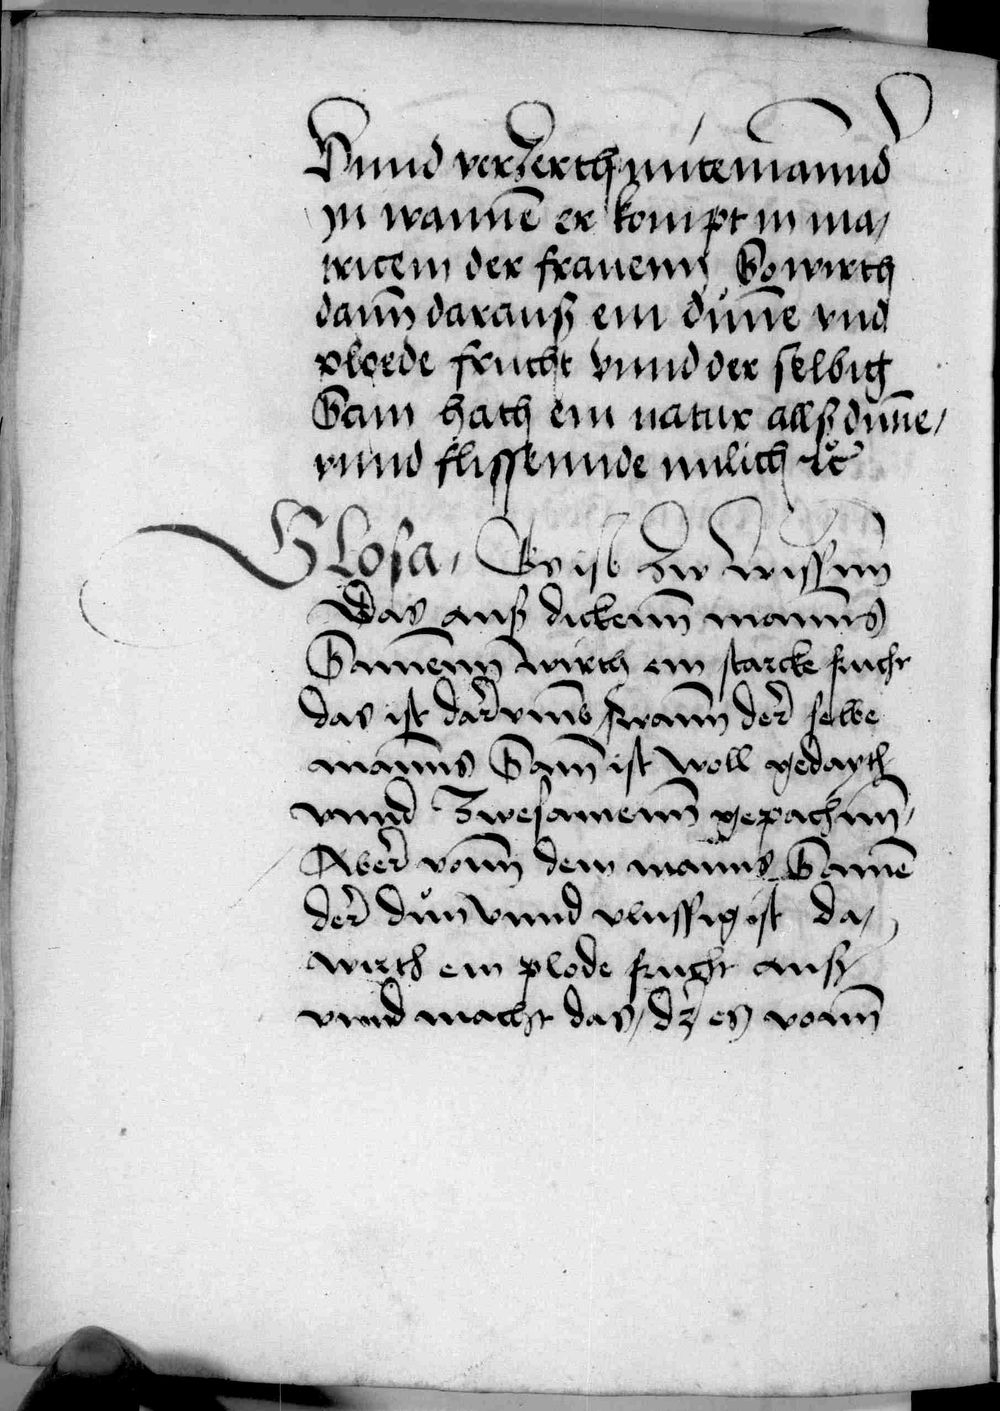 Vnnd verzerth nntemannd
yn wannē er kompt in ma/
tricem der frauenn So wirth
dann darauß ein dünne vnd
ploede frucht vnnd der selbig
Sam hath ein natur allß dünne/
vnnd flissennde milich ꝛc
Glosa / Es ist zw wissenn
Das auß dickenn manns
Samenn wirth ein starcke frucht
das ist darvmb / wann der selbe
manns Sam ist woll gedayth
vnnd zwesamenn gepachenn /
Aber vonn dem manns Samē
der dün vnnd vlussig ist da /
wirth ein plode frucht auß /
vnnd macht das / dz es vonn